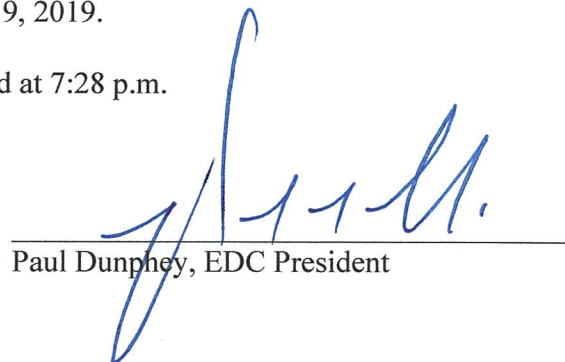 9, 2019.
d at 7:28 p.m.
Paul Dunphey, EDC President